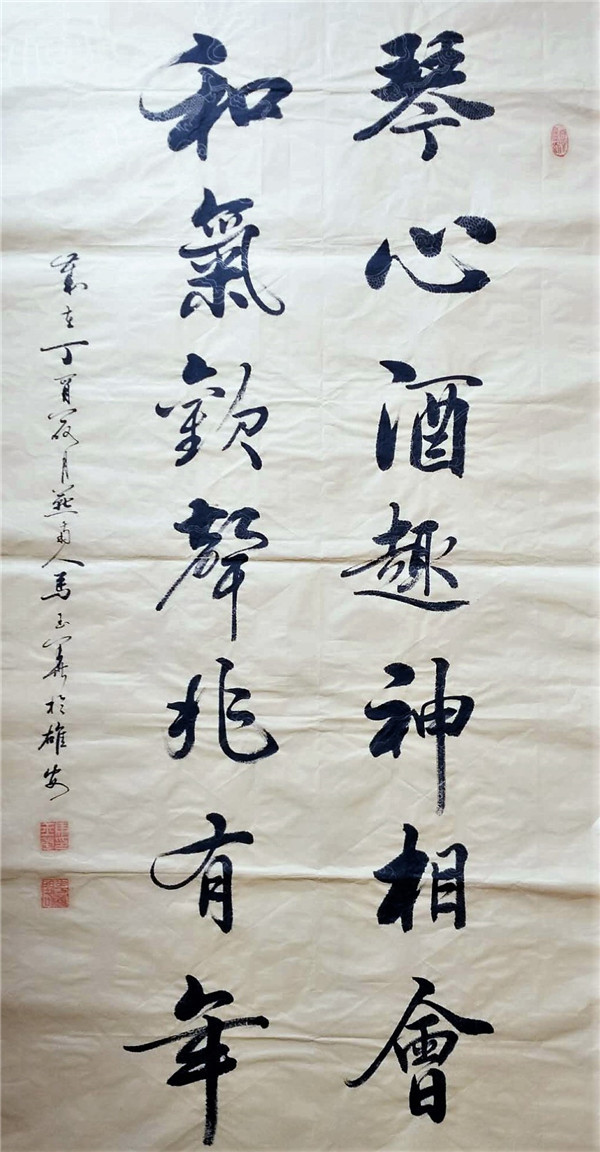 琴心酒趣神相會
和氣歡聲兆有年
歲在丁酉月燕南人馬玉於雄安